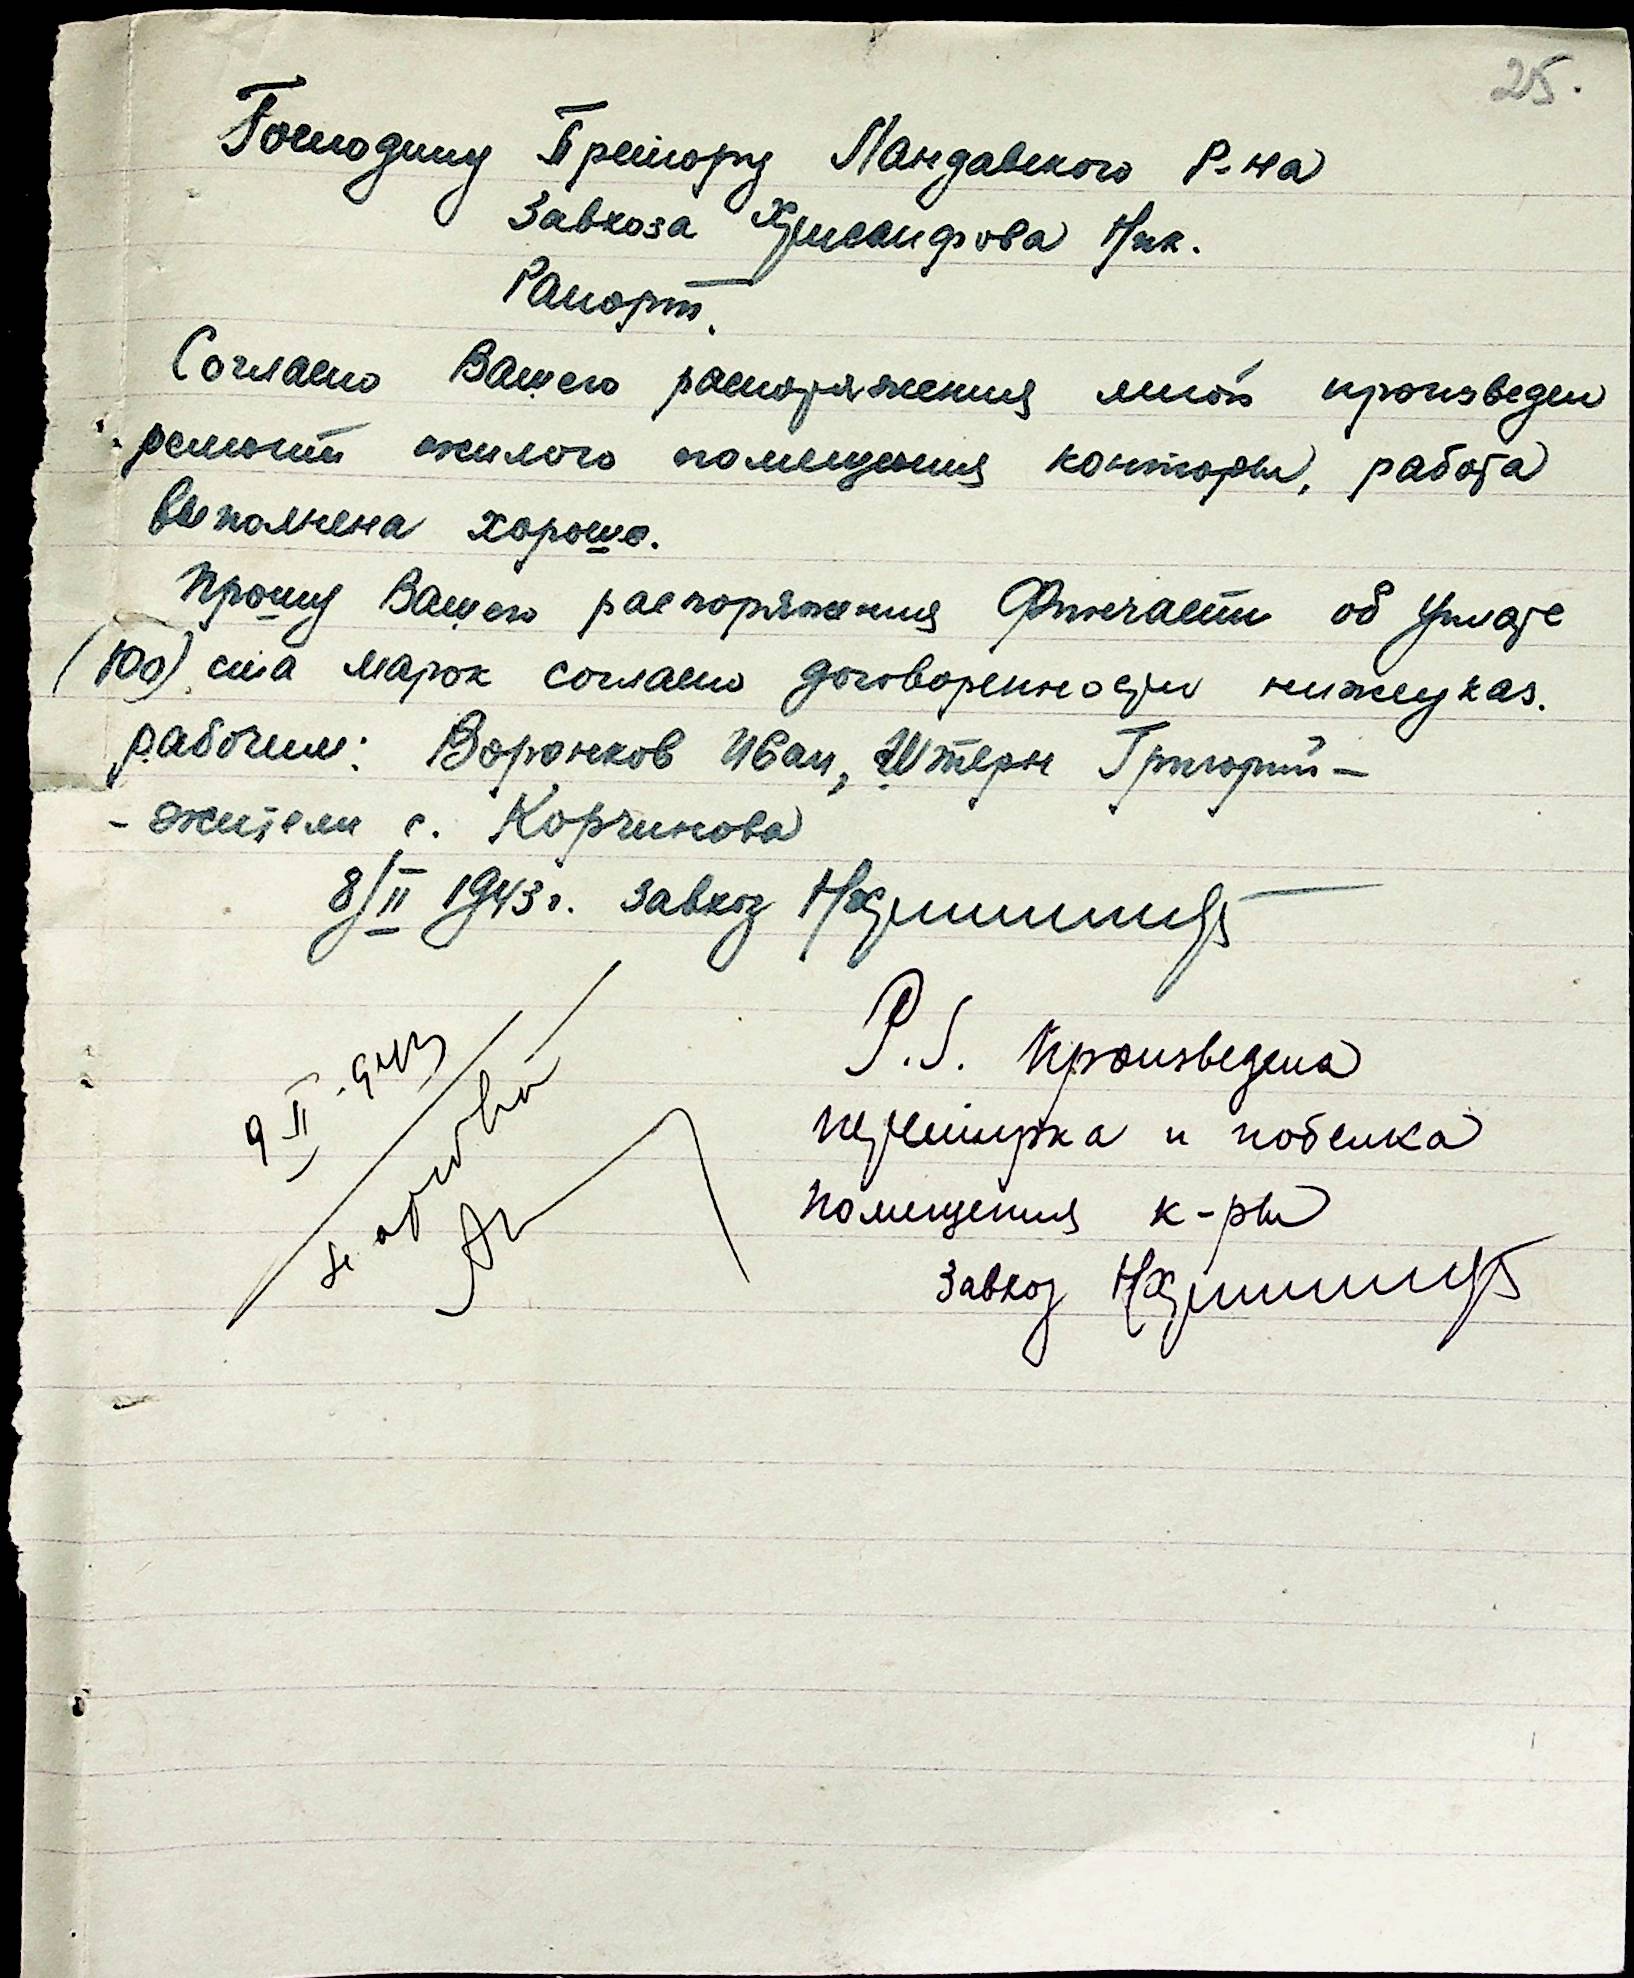 25.
Господину Претору Ландавского Р-на
Завхоза Хрисанфова Ник.
Рапорт.
Согласно Вашего распоряжения мной произведен
ремонт жилого помещения конторы, работа
выполнена хорошо.
Прошу Вашего распоряжения Финчасти об уплате
(100) ста марок согласно договоренности нижеуказ.
рабочим: Воронков Иван, Штерн Григорий –
– жители с. Корчинова
8/II 1943 г. Завхоз
9 II 943
P.S. Произведена
и побелка
помещения к-ры
Завхоз